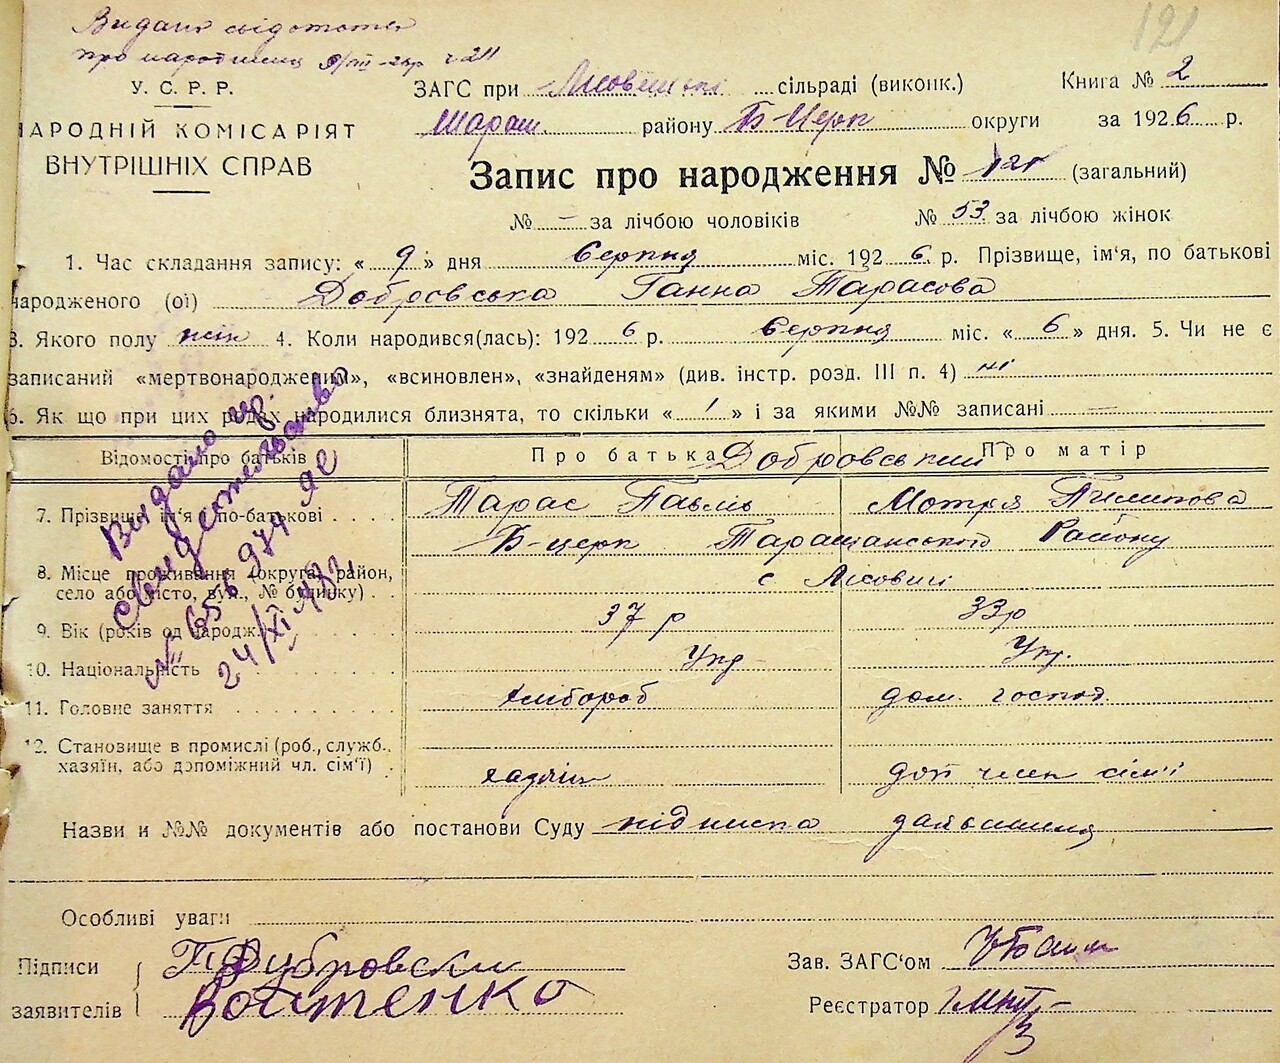 121
Видані свідотство
про народження 9/VIII-26р ч 211
У. С. Р. Р.
НАРОДНІЙ КОМІСАРІЯТ
ВНУТРІШНІХ СПРАВ
ЗАГС при Лісовицькі сільраді (виконк.) Книга № 2
Тараш району Б-Церк округи за 1926 р.
Запис про народження № 121 (загальний)
№ – за лічбою чоловіків № 53 за лічбою жінок
1. Час складання запису: « 9 » дня Серпня міс. 1926 р. Прізвище, ім'я, по батькові
народженого (ої) Добровська Ганна Тарасова
3. Якого полу жін 4. Коли народився(лась): 1926 р. Серпня міс. « 6 » дня. 5. Чи не є
записаний «мертвонародженим», «всиновлен», «знайденям» (див. інстр. розд. III п. 4) ні
6. Як що при цих родах народилися близнята, то скільки « 1 » і за якими №№ записані —
Відомості про батьків Про батька Добровський Про матір
7. Прізвище, ім'я по-батькові Тарас Павль Мотря Пилипова
Б-церк Таращанського Району
8. Місце проживання (округа, район,
село або місто, вул., № будинку) с Лісовичі
9. Вік (років од народж. 37 р 33р
10. Національність Укр Укр.
11. Головне заняття хлібороб дом. господ.
12. Становище в промислі (роб., служб.,
хазяїн, або допоміжний чл. сім'ї) хадяїн доп член сім'ї
Видано
свидетельство
№ 656974
24/XI
Назви и №№ документів або постанови Суду підписка
Особливі уваги
Підписи Т Дубровски Зав. ЗАГС'ом
заявителів Войтенко Реєстратор